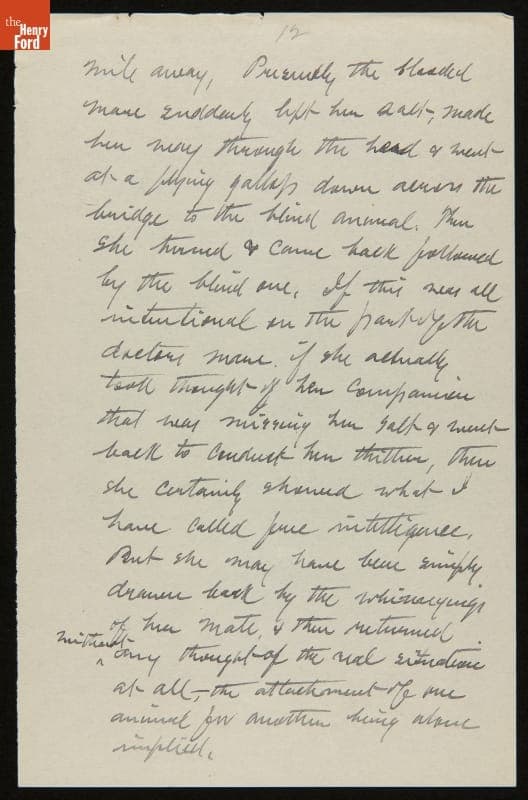 the
Henry
Ford
12
mile away, Presently the blooded
mare suddenly left her salt, made
her way through the herd & went
at a flying gallop down across the
bridge to the blind animal. Then
she turned & came back followed
by the blind one. If this was all
intentional on the part of the
doctors mare, if she actually
took thought of her companion
that was missing her salt & went
back to conduct her thither, then
she certainly showed what I
have called free intelligence.
But she may have been simply
drawn back by the whinneyings
of her mate, & then returned
without
any thought of the real situation
at all,—the attachment of one
animal for another being alone
implied.